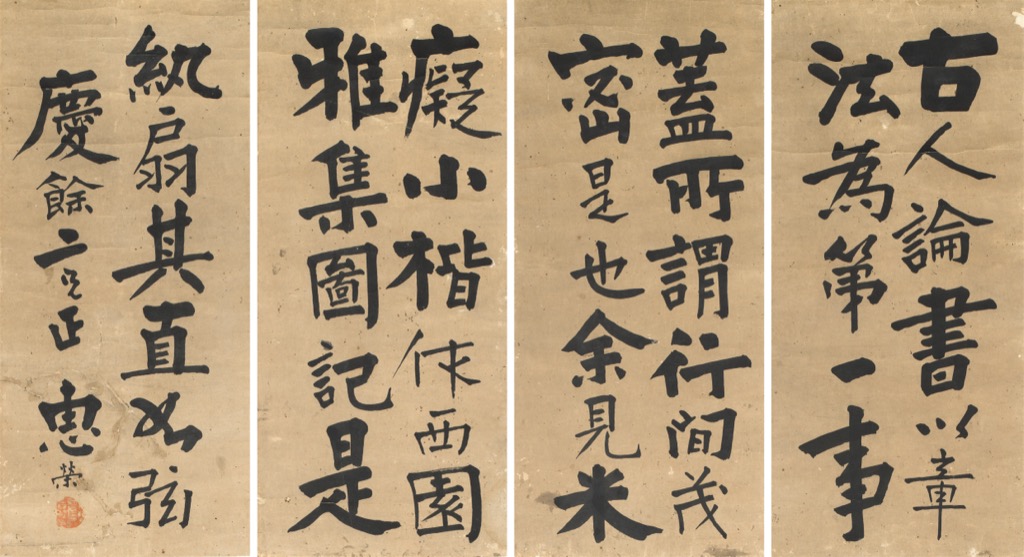 古人論書以章
法為第一事
蓋所謂行間茂
密是也余見米
癡小楷作西園
雅集圖記是
紈扇其直如弦
慶餘二兄正
榮